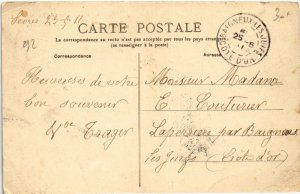 Sèvres 22-8-11
CARTE POSTALE
La correspondance au recto n'est pas acceptée par tous les pays étrangers
(se renseigner à la poste)
Correspondance
BAIGNEUX-LES-JUIFS
25 -8
CÔTE D'OR
Heureuses de votre
bon souvenir
Monsieur Madame
E. Couturier
Laperrière par Baigneux
les Juifs (Côte d'or)